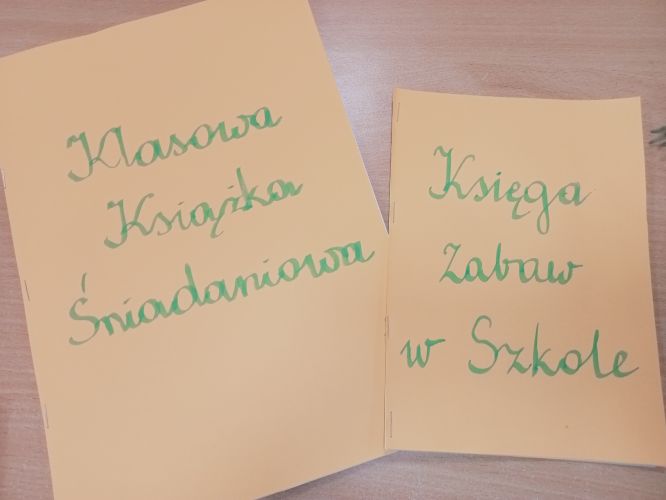 Klasowa
Książka
Śniadaniowa
Księga
Zabaw
w Szkole